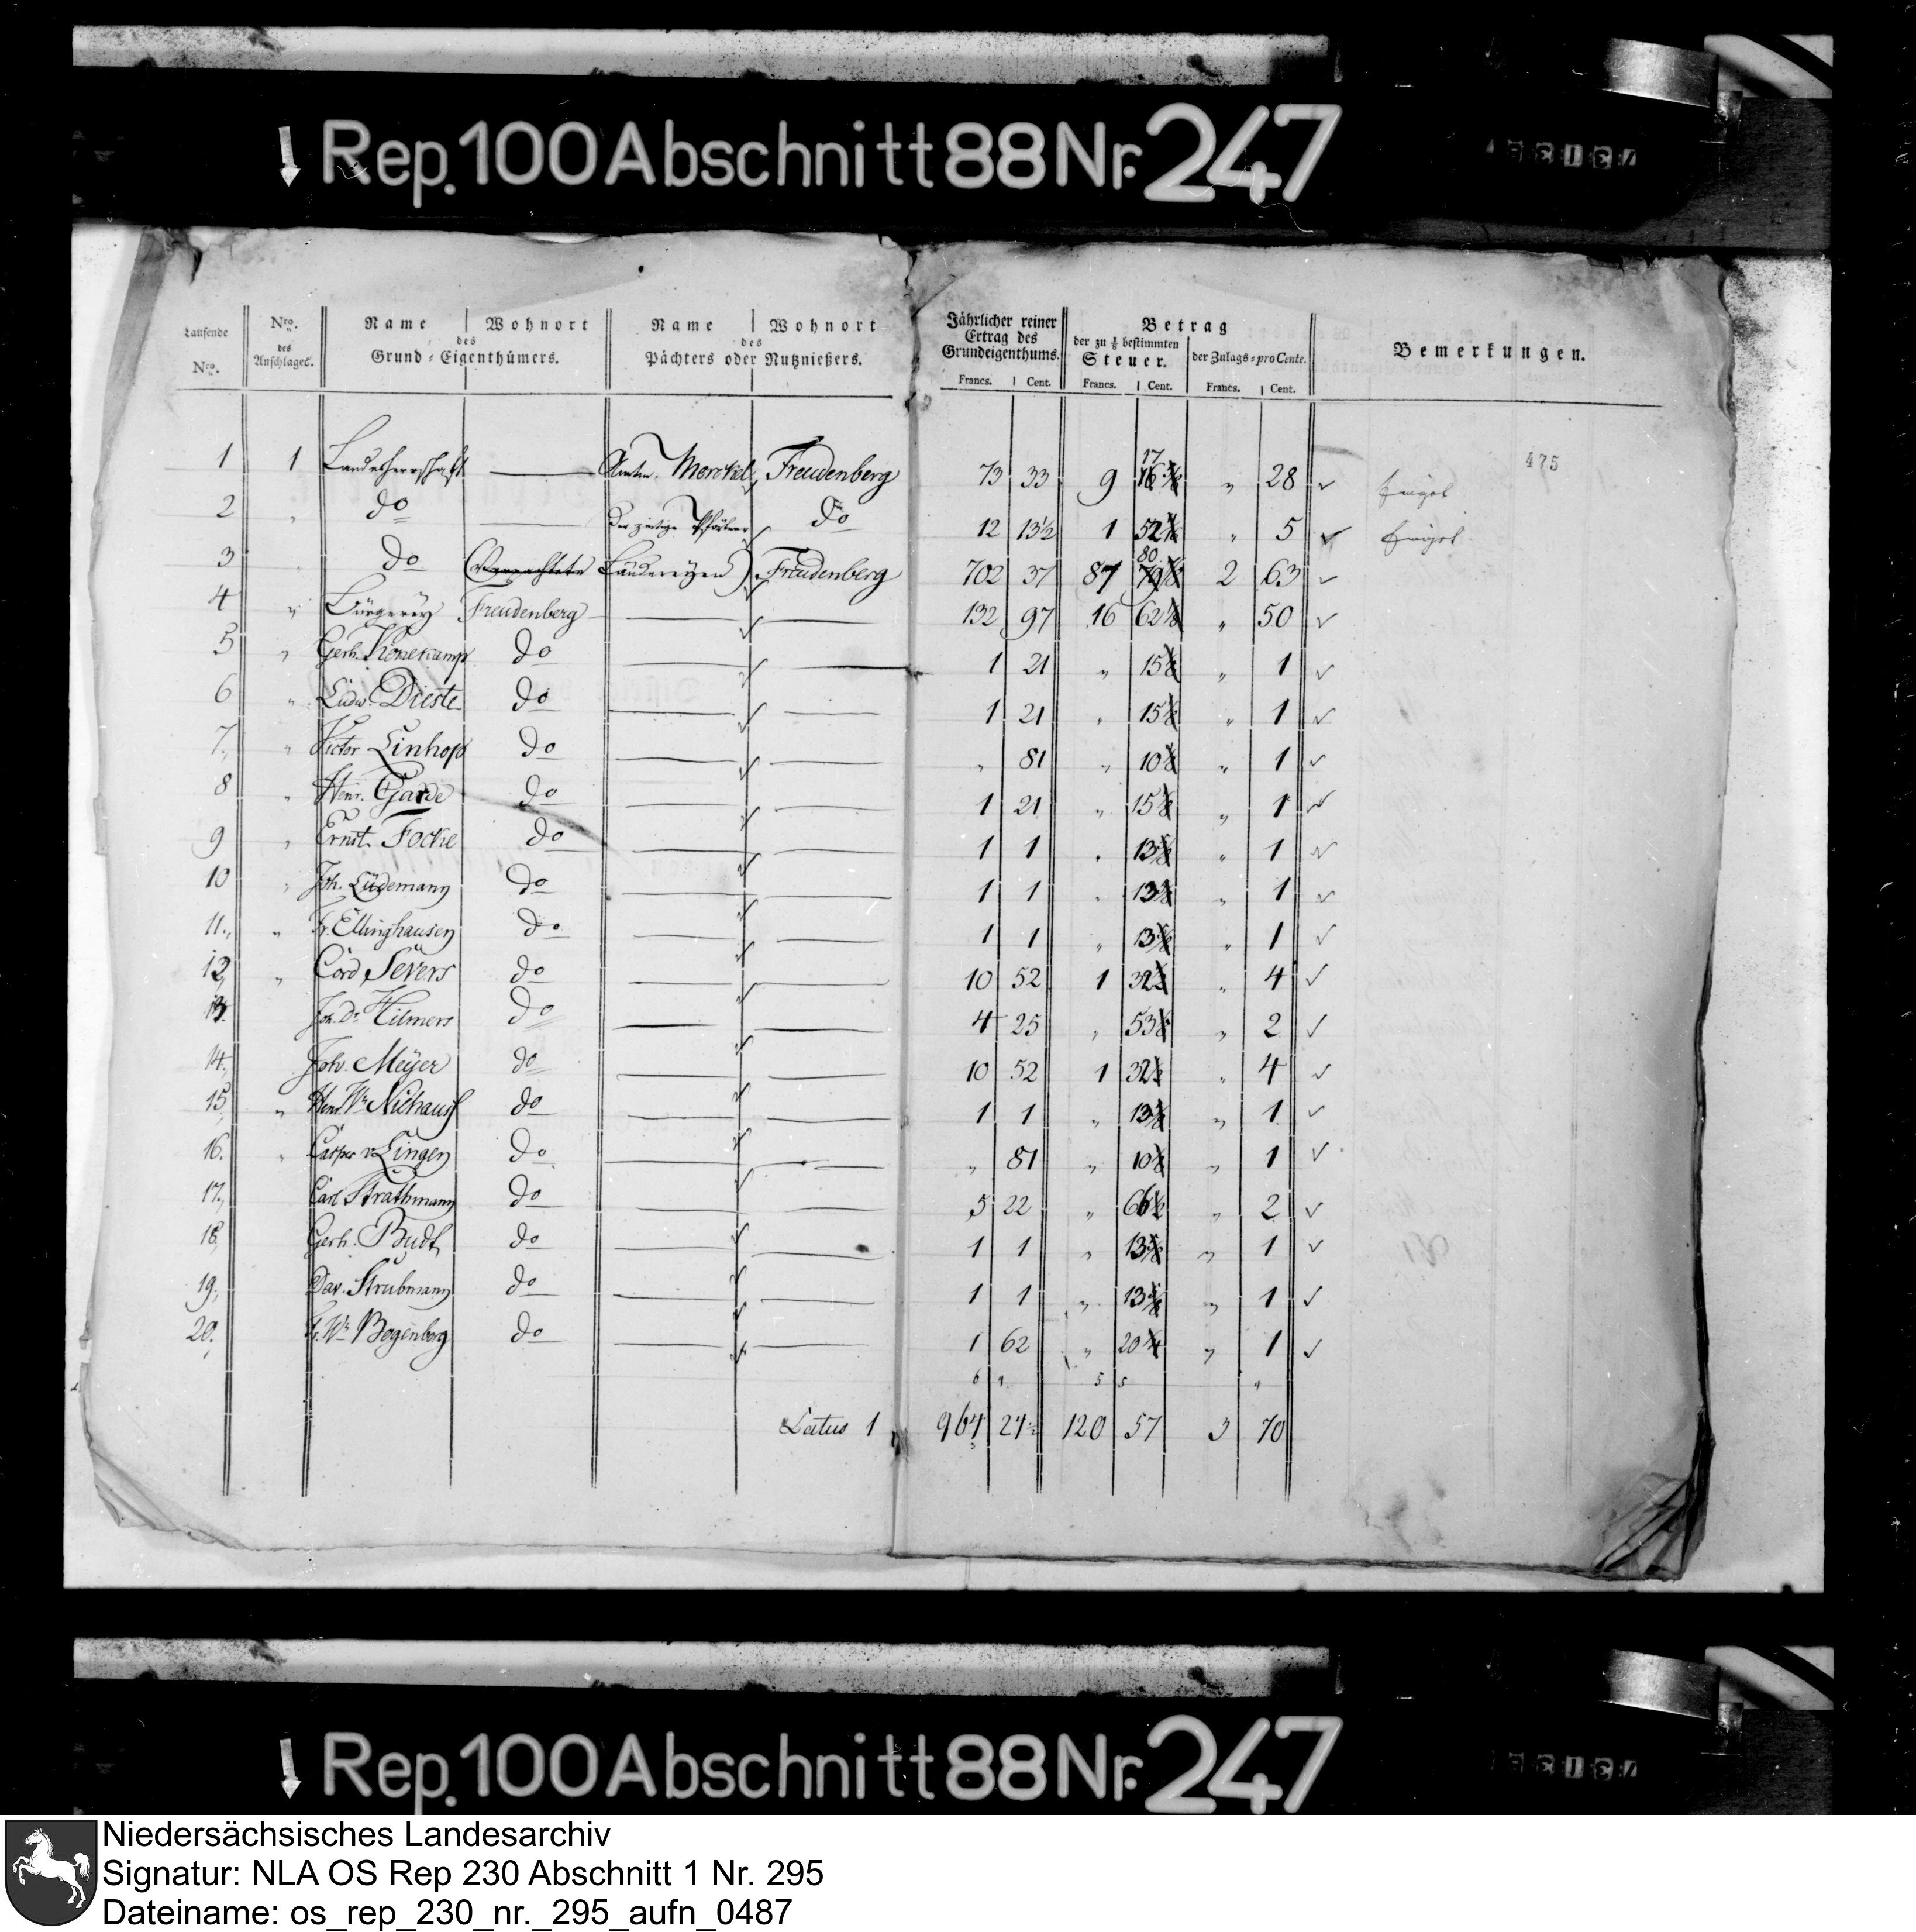 Rep. 100 Abschnitt 88 Nr. 247
Laufende Nro. | Nro. des Anschlages. | Name | Wohnort | Name | Wohnort | Jährlicher reiner Ertrag des Grundeigenthums. | Betrag | Bemerkungen.
des Grund-Eigenthümers. | des Pächters oder Nutznießers. | der zu 1/8 bestimmten Steuer. | der Zulags-pro Cente.
Francs. | Cent. | Francs. | Cent. | Francs. | Cent.
475
1 | 1 | Landesherrschaft | — | Amtm. Merckel | Freudenberg | 73 | 33 | 9 | 17 | „ | 28
2 | „ | do | — | Der zeitige Pförtner | do | 12 | 13½ | 1 | 52 | „ | 5
3 | „ | do | (Verpachtete Ländereyen) | Freudenberg | 702 | 37 | 87 | 80 | 2 | 63
4 | „ | Bürgerey | Freudenberg | — | — | 132 | 97 | 16 | 62 | „ | 50
5 | „ | Gerh. Könekamp | do | — | — | 1 | 21 | „ | 15 | „ | 1
6 | „ | Ludw. Dieste | do | — | — | 1 | 21 | „ | 15 | „ | 1
7. | „ | Victor Linhop | do | — | — | „ | 81 | „ | 10 | „ | 1
8 | „ | Henr. Garde | do | — | — | 1 | 21 | „ | 15 | „ | 1
9 | „ | Ernst. Focke | do | — | — | 1 | 1 | „ | 13 | „ | 1
10 | „ | Joh. Lüdemann | do | — | — | 1 | 1 | „ | 13 | „ | 1
11. | „ | Fr. Ellinghausen | do | — | — | 1 | 1 | „ | 13 | „ | 1
12 | „ | Cord Severs | do | — | — | 10 | 52 | 1 | 32 | „ | 4
13. | Joh. Dr. Hilmers | do | — | — | 4 | 25 | „ | 53 | „ | 2
14. | Joh. Meyer | do | — | — | 10 | 52 | 1 | 32 | „ | 4
15 | „ | Henr. Wm. Niehaus | do | — | — | 1 | 1 | „ | 13 | „ | 1
16. | „ | Casper v. Lingen | do | — | — | „ | 81 | „ | 10 | „ | 1
17. | Carl Strathmann | do | — | — | 5 | 22 | „ | 66 | „ | 2
18. | Gerh. Budt | do | — | — | 1 | 1 | „ | 13 | „ | 1
19. | Dav. Strubmann | do | — | — | 1 | 1 | „ | 13 | „ | 1
20. | Fr. Wm. Bogenberg | do | — | — | 1 | 62 | „ | 20 | „ | 1
Latus 1 | 964 | 24½ | 120 | 57 | 3 | 70
Rep. 100 Abschnitt 88 Nr. 247
Niedersächsisches Landesarchiv
Signatur: NLA OS Rep 230 Abschnitt 1 Nr. 295
Dateiname: os_rep_230_nr._295_aufn_0487